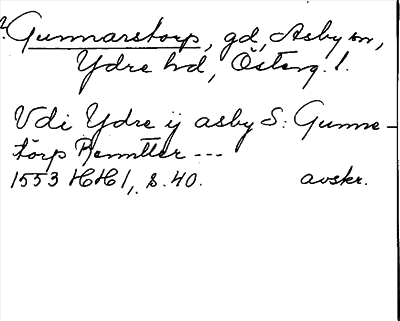 ? Gunnarstorp, gd, Asby sn,
Ydre hd, Österg. l.
Vdi Ydre ij asby S: Gunne-
törp Renntter ---
1553 HH 1, s. 40. avskr.